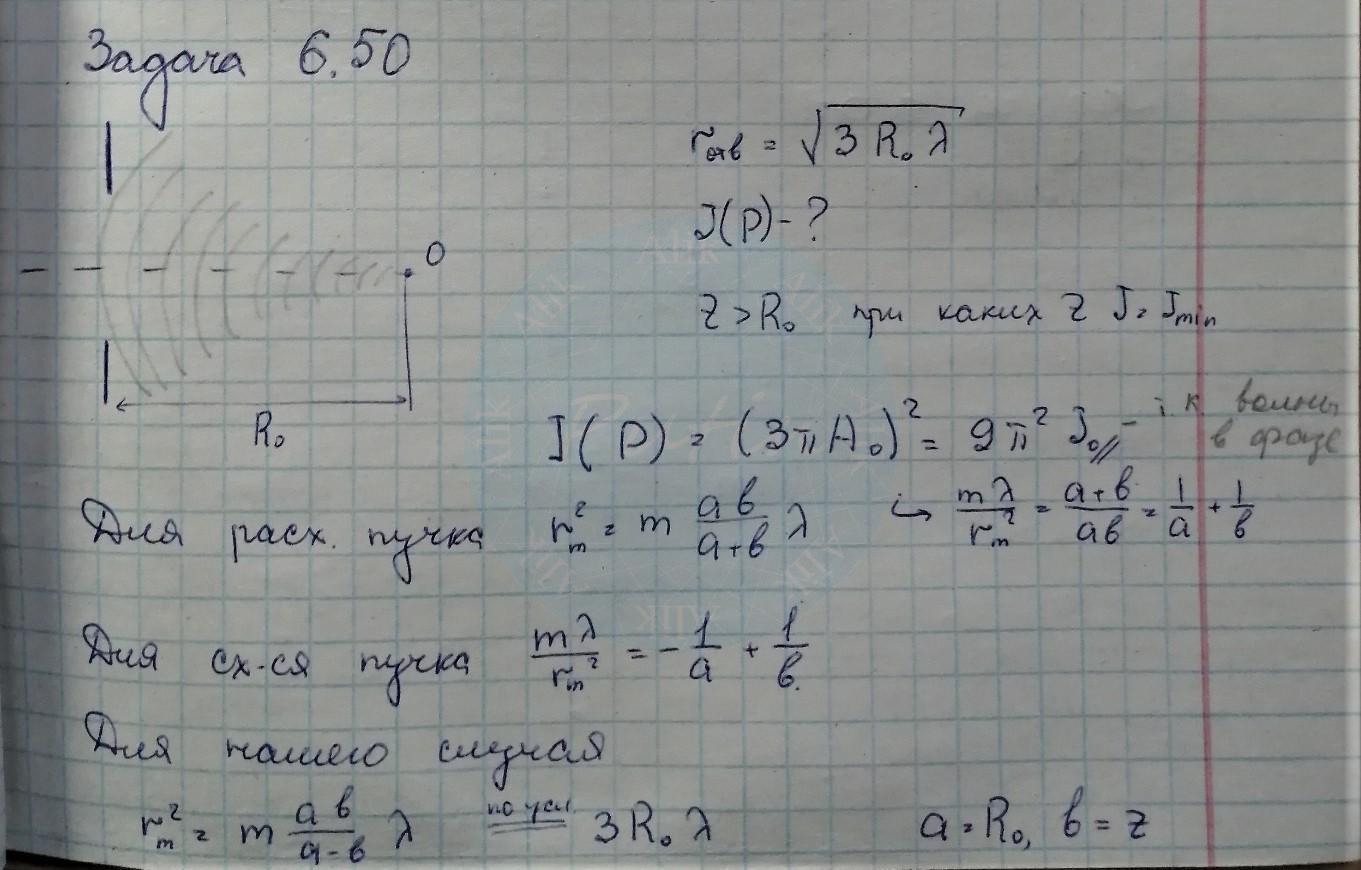 Задача 6.50
r отв = √3 R₀ λ
J(P) - ?
O
z > R₀ при каких z J = Jmin
R₀
J(P) = (3πA₀)² = 9π² J₀ // - т к волны в фазе
Для расх. пучка r²ₘ = m ab/(a+b) λ ↪ mλ/rₘ² = (a+b)/ab = 1/a + 1/b
Для сх-ся пучка mλ/rₘ² = - 1/a + 1/b.
Для нашего случая
r²ₘ = m ab/(a-b) λ по усл. 3 R₀ λ a = R₀, b = z